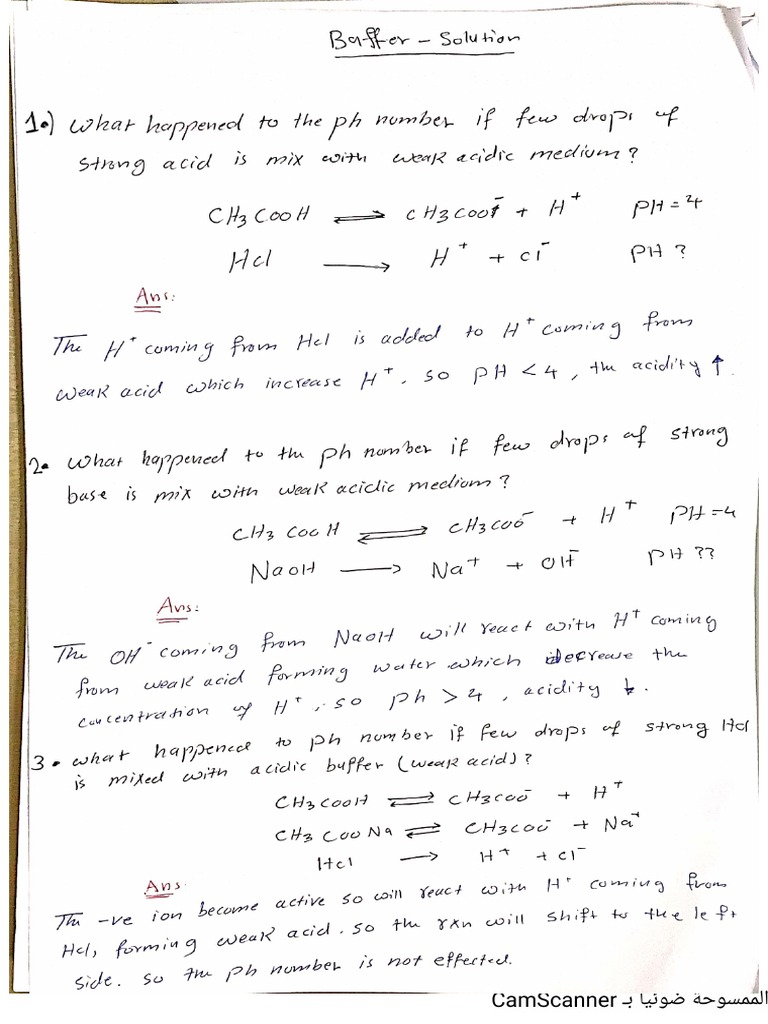 Baffer - Solution
1.) What happened to the ph number if few drops of
strong acid is mix with weak acidic medium?
CH3COOH ⇌ CH3COO⁻ + H⁺ PH=4
Hcl ⟶ H⁺ + cl⁻ PH ?
Ans:
The H⁺ coming from Hcl is added to H⁺ coming from
weak acid which increase H⁺. so PH < 4, the acidity ↑.
2. What happened to the ph number if few drops of strong
base is mix with weak acidic medium?
CH3COOH ⇌ CH3COO⁻ + H⁺ PH=4
NaOH ⟶ Na⁺ + OH⁻ PH ??
Ans:
The OH⁻ coming from NaOH will react with H⁺ coming
from weak acid forming water which decrease the
concentration of H⁺, so ph > 4, acidity ↓.
3. what happened to ph number if few drops of strong Hcl
is mixed with acidic buffer (weak acid)?
CH3COOH ⇌ CH3COO⁻ + H⁺
CH3COONa ⇌ CH3COO⁻ + Na⁺
Hcl ⟶ H⁺ + cl⁻
Ans
The -ve ion become active so will react with H⁺ coming from
Hcl, forming weak acid. so the rxn will shift to the left
side. so the ph number is not effected.
الممسوحة ضوئيا بـ CamScanner